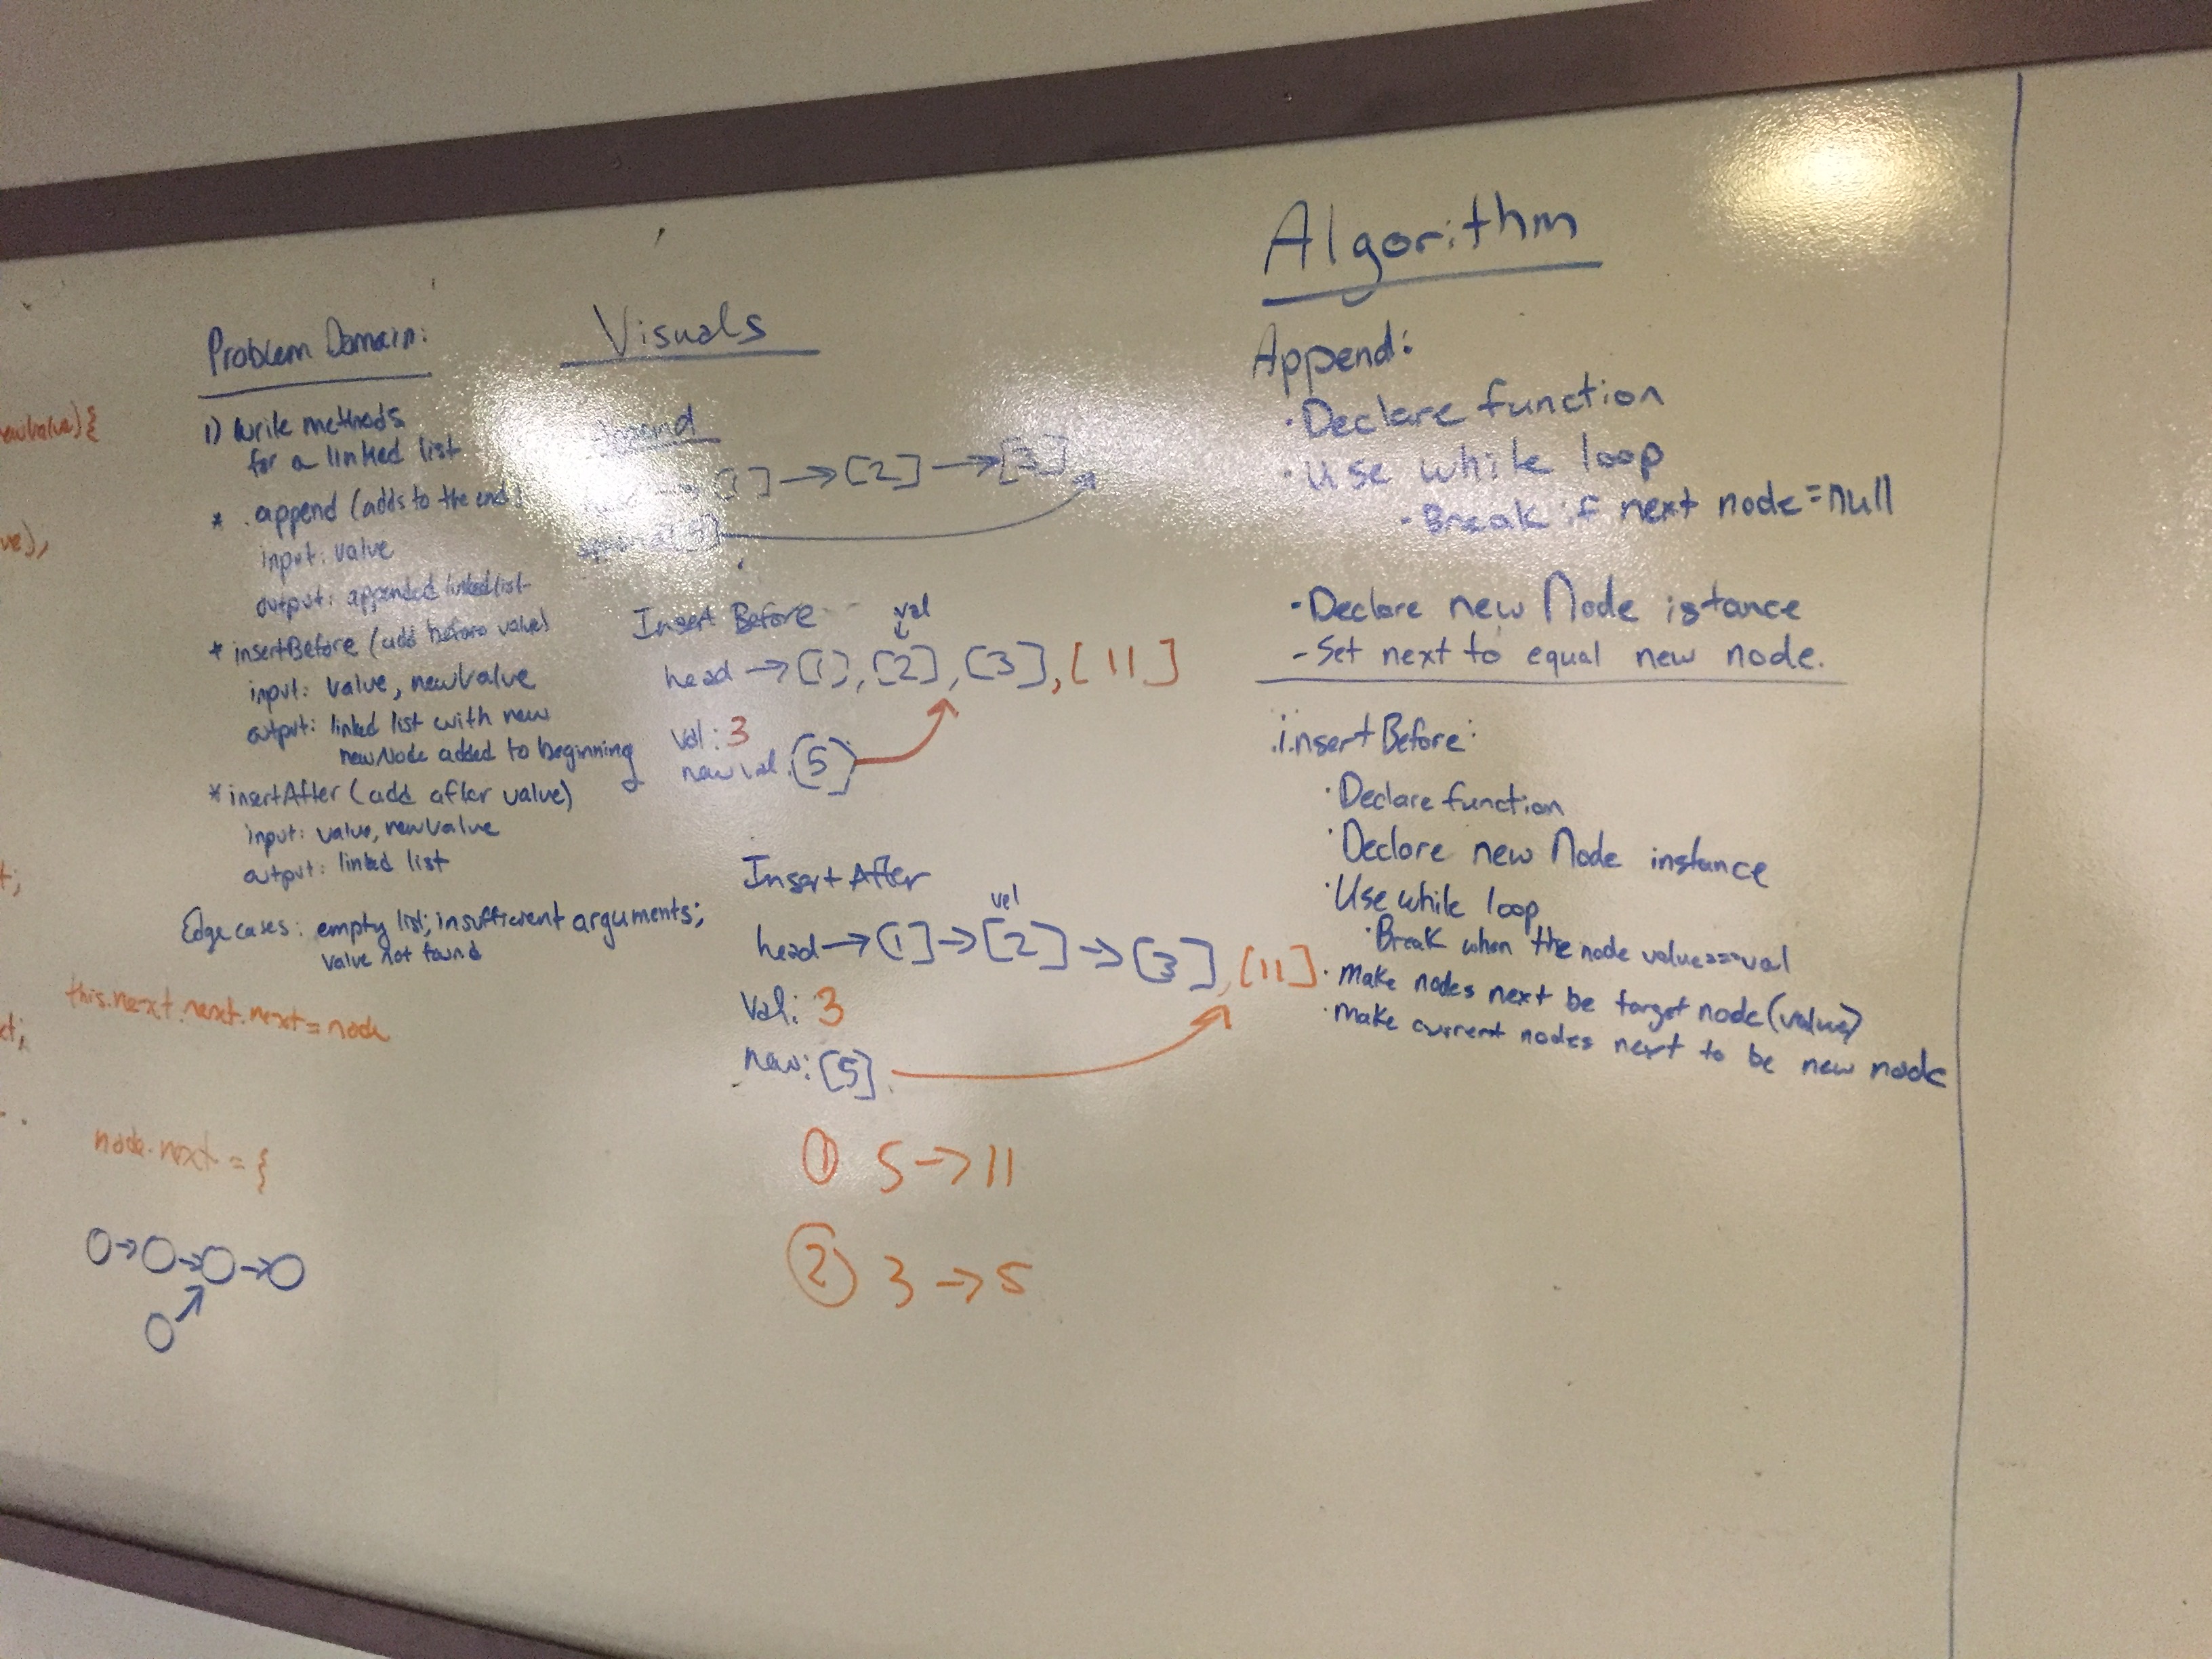 Problem Domain:
1) Write methods
for a linked list
* .append (adds to the end)
input: value
output: appended linked list
* insertBefore (add before value)
input: value, newValue
output: linked list with new
newNode added to beginning
* insertAfter (add after value)
input: value, newValue
output: linked list
Edge cases: empty list; insufficient arguments;
value not found
this.next.next.next = node
node.next = {
newValue) {
Visuals
Append
[1] → [2] → [3]
Insert Before
val
head → [1], [2], [3], [11]
val: 3
new val. [5]
Insert After
val
head → [1] → [2] → [3], [11]
Val: 3
new: [5]
① 5 → 11
② 3 → 5
Algorithm
Append:
· Declare function
· Use while loop
- Break if next node = null
- Declare new Node istance
- Set next to equal new node.
.insertBefore:
· Declare function
· Declare new Node instance
· Use while loop
· Break when the node value === val
· Make nodes next be target node (value)
· Make current nodes next to be new node